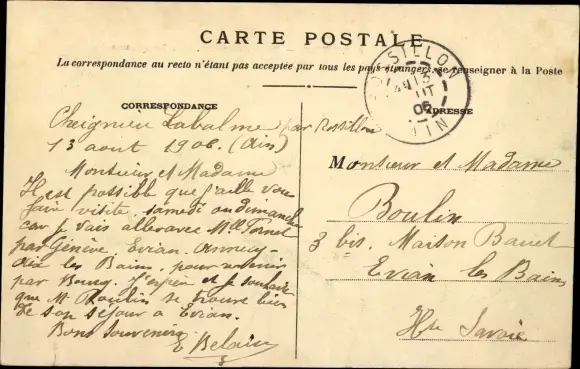 CARTE POSTALE
La correspondance au recto n'étant pas acceptée par tous les pays étrangers, se renseigner à la Poste
CORRESPONDANCE
Cheignieu Labalme par Rossillon
13 aout 1906. (Ain)
Monsieur et Madame
Il est possible que j'aille vous
faire visite samedi ou dimanche
car je vais aller avec Mlle
par Genève, Evian. Annecy.
Aix les Bains, pour revenir
par Bourg. J'espère et je souhaite
que Mr Boulin se trouve bien
de son séjour à Evian.
Bons souvenirs
E Belain
ROSSILLON
13
AOUT
06
AIN
ADRESSE
Monsieur et Madame
Boulin
3 bis. Maison
Evian les Bains
Hte Savoie